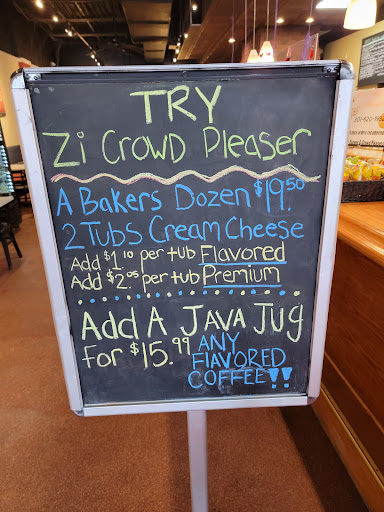 TRY
Zi Crowd Pleaser
A Bakers Dozen $19.50
2 Tubs Cream Cheese
Add $1.10 per tub Flavored
Add $2.05 per tub Premium
Add A Java Jug
For $15.99 ANY
FLAVORED
COFFEE!!